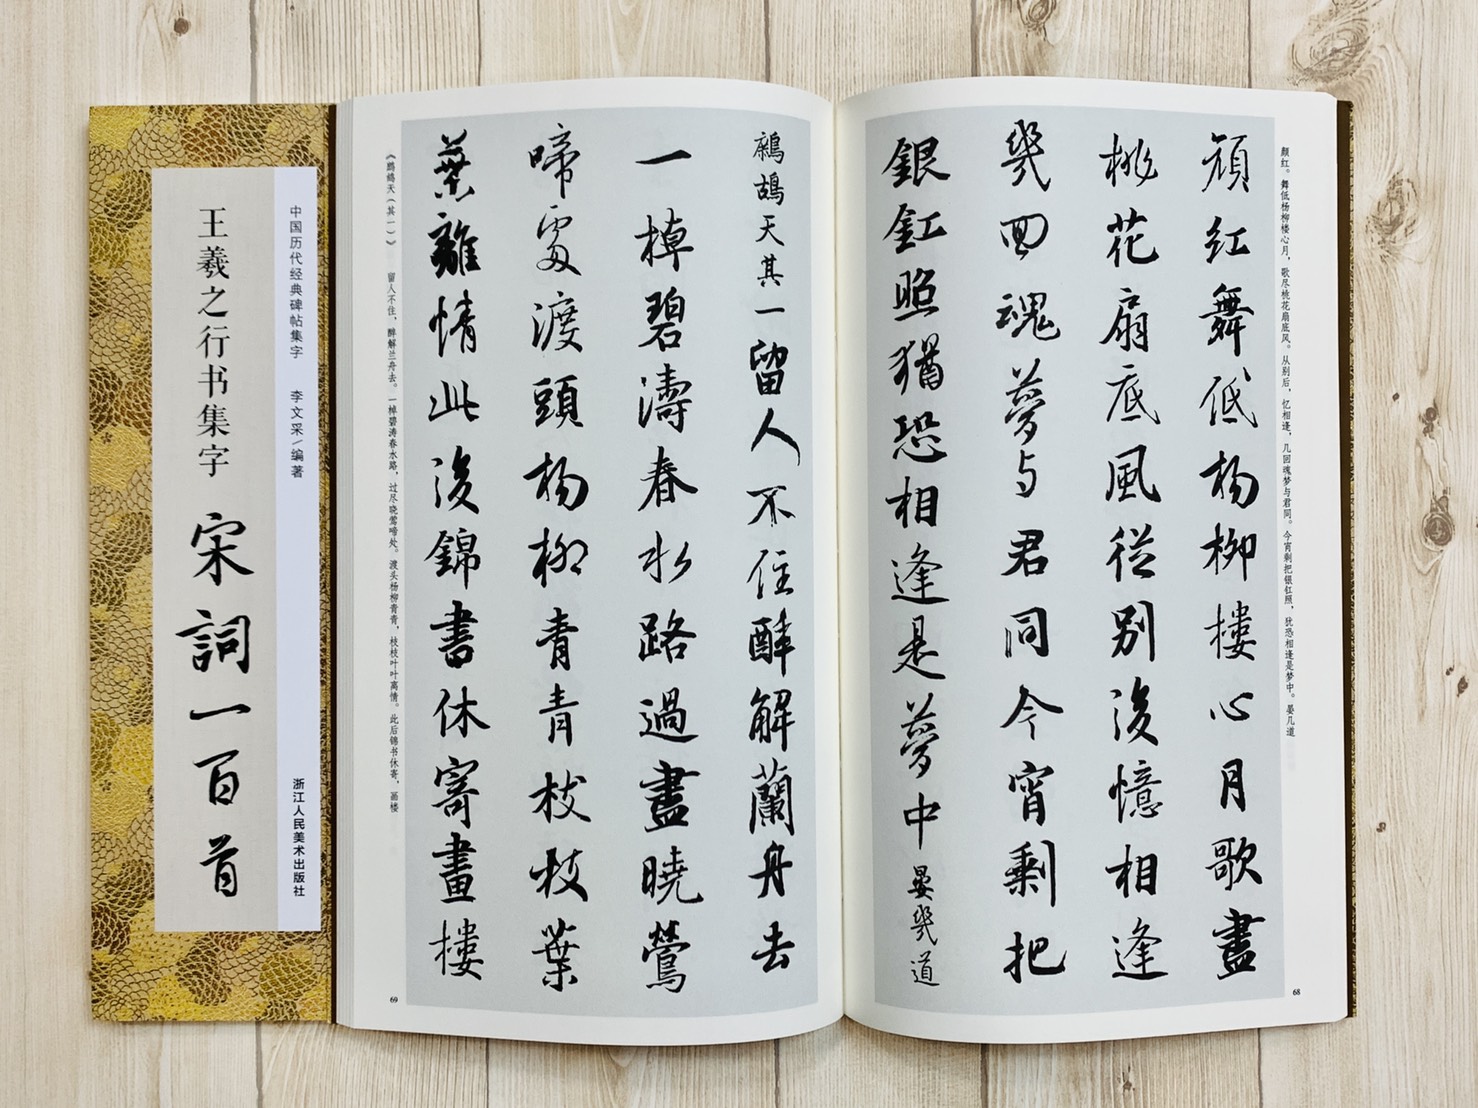 颜红。舞低杨柳楼心月，歌尽桃花扇底风。从别后，忆相逢，几回魂梦与君同。今宵剩把银釭照，犹恐相逢是梦中。晏几道
颜红舞低杨柳楼心月歌盡
桃花扇底風従别後憶相逢
幾回魂夢与君同今宵剩把
銀釭照猶恐相逢是夢中晏幾道
68
鷓鴣天其一留人不住醉解蘭舟去
一棹碧濤春水路過盡曉鶯
啼處渡頭杨柳青青枝枝葉
葉離情此後錦書休寄畫樓
《鹧鸪天（其一）》 留人不住，醉解兰舟去。一棹碧涛春水路，过尽晓莺啼处。渡头杨柳青青，枝枝叶叶离情。此后锦书休寄，画楼
69
中国历代经典碑帖集字 李文采/编著
浙江人民美术出版社
王羲之行书集字 宋詞一百首